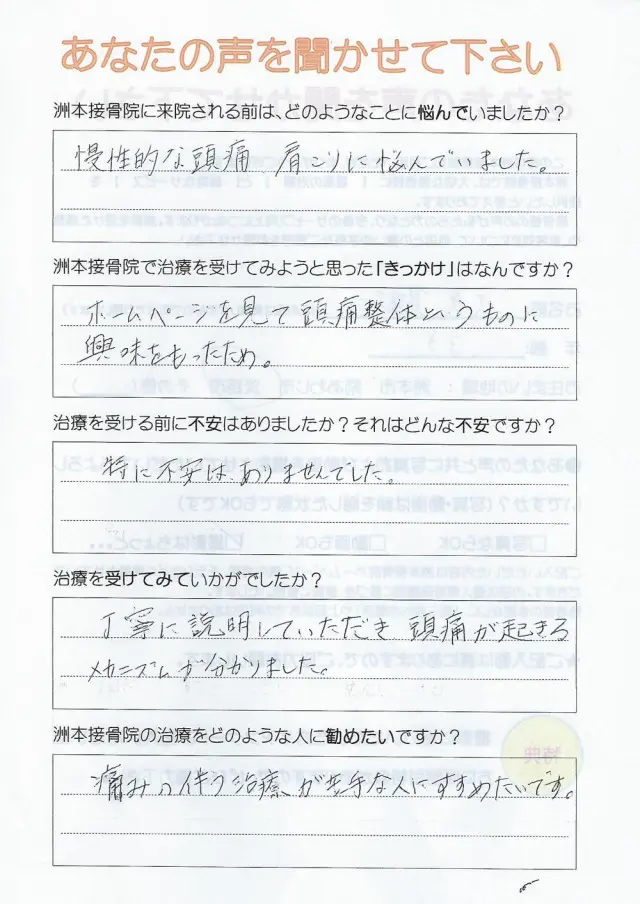 あなたの声を聞かせて下さい
洲本接骨院に来院される前は、どのようなことに悩んでいましたか？
慢性的な頭痛 肩こりに悩んでいました。
洲本接骨院で治療を受けてみようと思った「きっかけ」はなんですか？
ホームページを見て頭痛整体というものに
興味をもったため。
治療を受ける前に不安はありましたか？それはどんな不安ですか？
特に不安は、ありませんでした。
治療を受けてみていかがでしたか？
丁寧に説明していただき 頭痛が起きる
メカニズムが分かりました。
洲本接骨院の治療をどのような人に勧めたいですか？
痛みの伴う治療が苦手な人にすすめたいです。